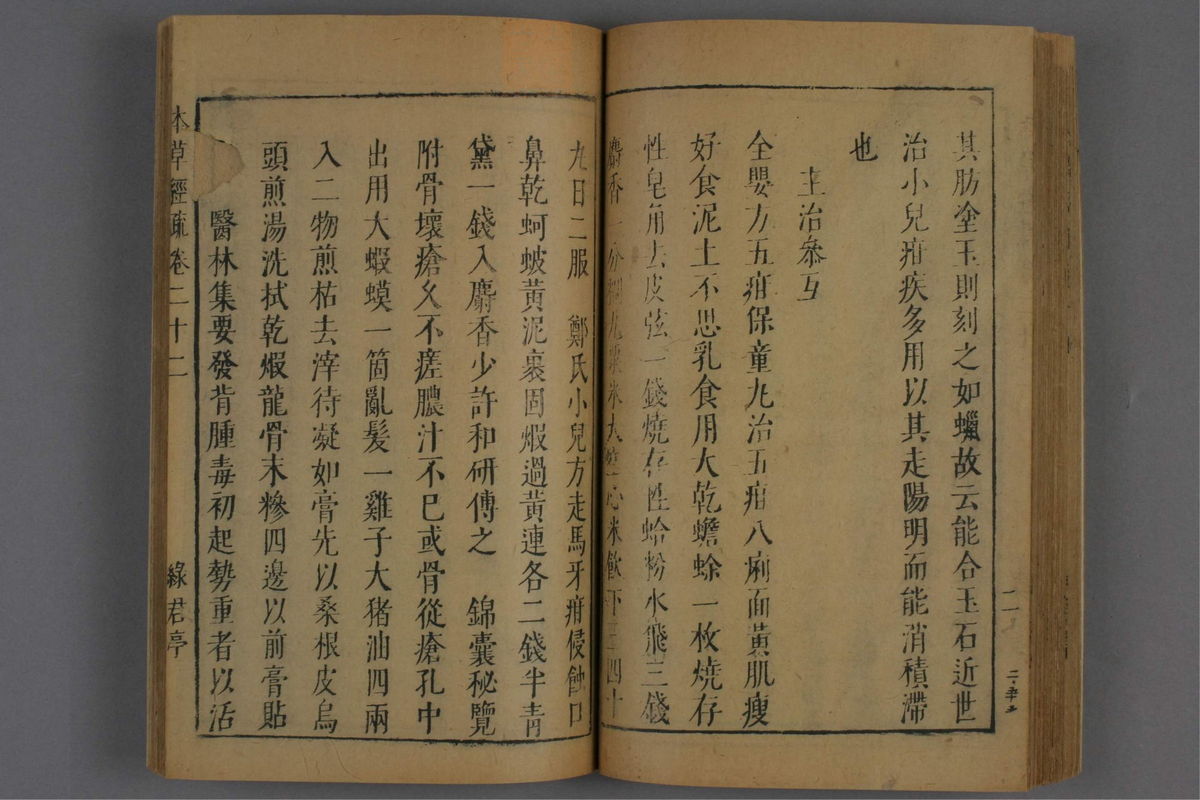 其肪塗玉則刻之如蠟故云能合玉石近世
治小兒疳疾多用以其走陽明而能消積滯
也
主治叅互
全嬰方五疳保童丸治五疳八痢面黃肌瘦
好食泥土不思乳食用大乾蟾蜍一枚燒存
性皂角去皮弦一錢燒存性蛤粉水飛三錢
麝香一分糊丸粟米大空心米飲下三四十
九日二服 鄭氏小兒方走馬牙疳侵蝕口
鼻乾蚵蚾黃泥裹固煆過黃連各二錢半青
黛一錢入麝香少許和研傅之 錦囊秘覽
附骨壞瘡乆不瘥膿汁不巳或骨從瘡孔中
出用大蝦蟆一箇亂髪一雞子大猪油四兩
入二物煎枯去滓待凝如膏先以桑根皮烏
頭煎湯洗拭乾煆龍骨末糝四邊以前膏貼
醫林集要發背腫毒初起勢重者以活
本草經疏卷二十二 綠君亭